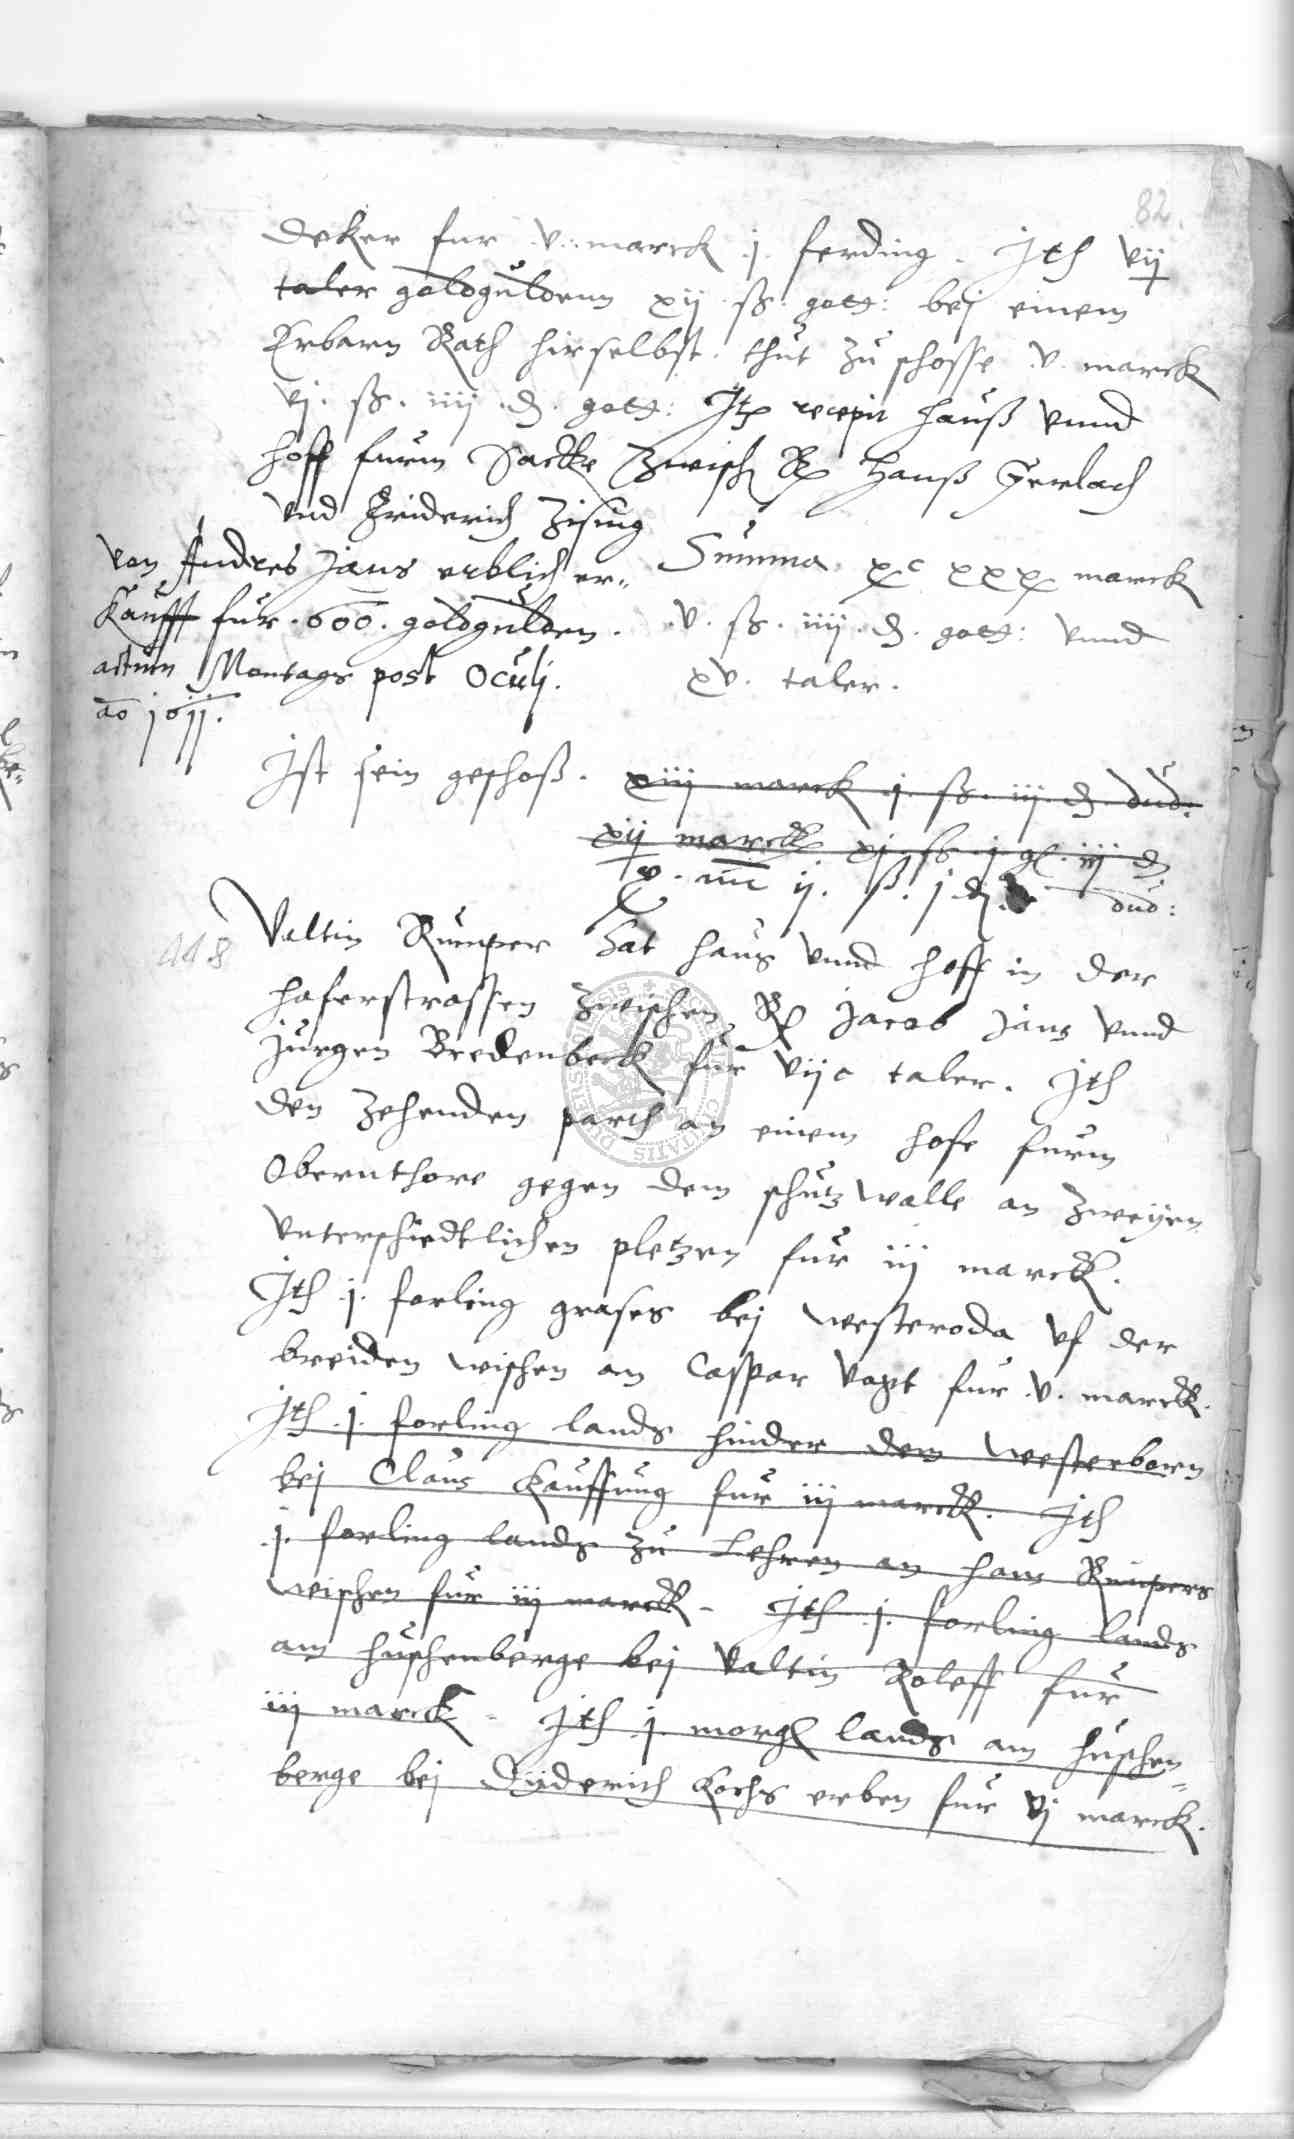 82.
deker fur .v. marck .j. ferding . Jth vij
taler goldguldenn xij ß. gott: bej einem
Erbarn Rath hirselbst. thut zu schosse .v. marck
vj. ß. iiij .d. gott: Jt recepit hauß vnnd
hoff furm Sacke Zwisch R Hanß Gerlach
vnd Friderich Zising
von Andres Jans erblich er-
kaufft fur .600. goldgulden.
actum Montags post Oculj.
ao 1611.
Summa. xc xxx marck
.v. ß. iiij. d. gott: vnnd
xv. taler.
Jst sein geschoß. xiij marck .j. ß. iij d dud:
xij marck xj ß. j g. iij d
v. mc ij. ß. j d. dud:
448
Valtin Rumper hat haus vnnd hoff in der
haferstrassen zwischen R Jacob Jans vnnd
Jurgen Bredenbeck fur vijc taler. Jth
den zehenden parth an einem hofe furm
Obernthore gegen dem schutzwalle an zweyen
vnterschiedtlichen pletzen fur iij marck.
Jth .j. forling grases bej westeroda vf der
breiden wischen an Caspar Vogt fur .v. marck.
Jth .j. forling lands hinder dem westerborn
bej Claus Kauffung fur iij marck. Jth
.j. forling lands zu Lehren an hans Rumpers
wischen fur iij marck - Jth .j. forling lands
am huschenberge bej Valtin Roleff fur
iij marck - Jth .j. morg lands am huschen-
berge bej Dyderich Kochs erben fur vj marck.